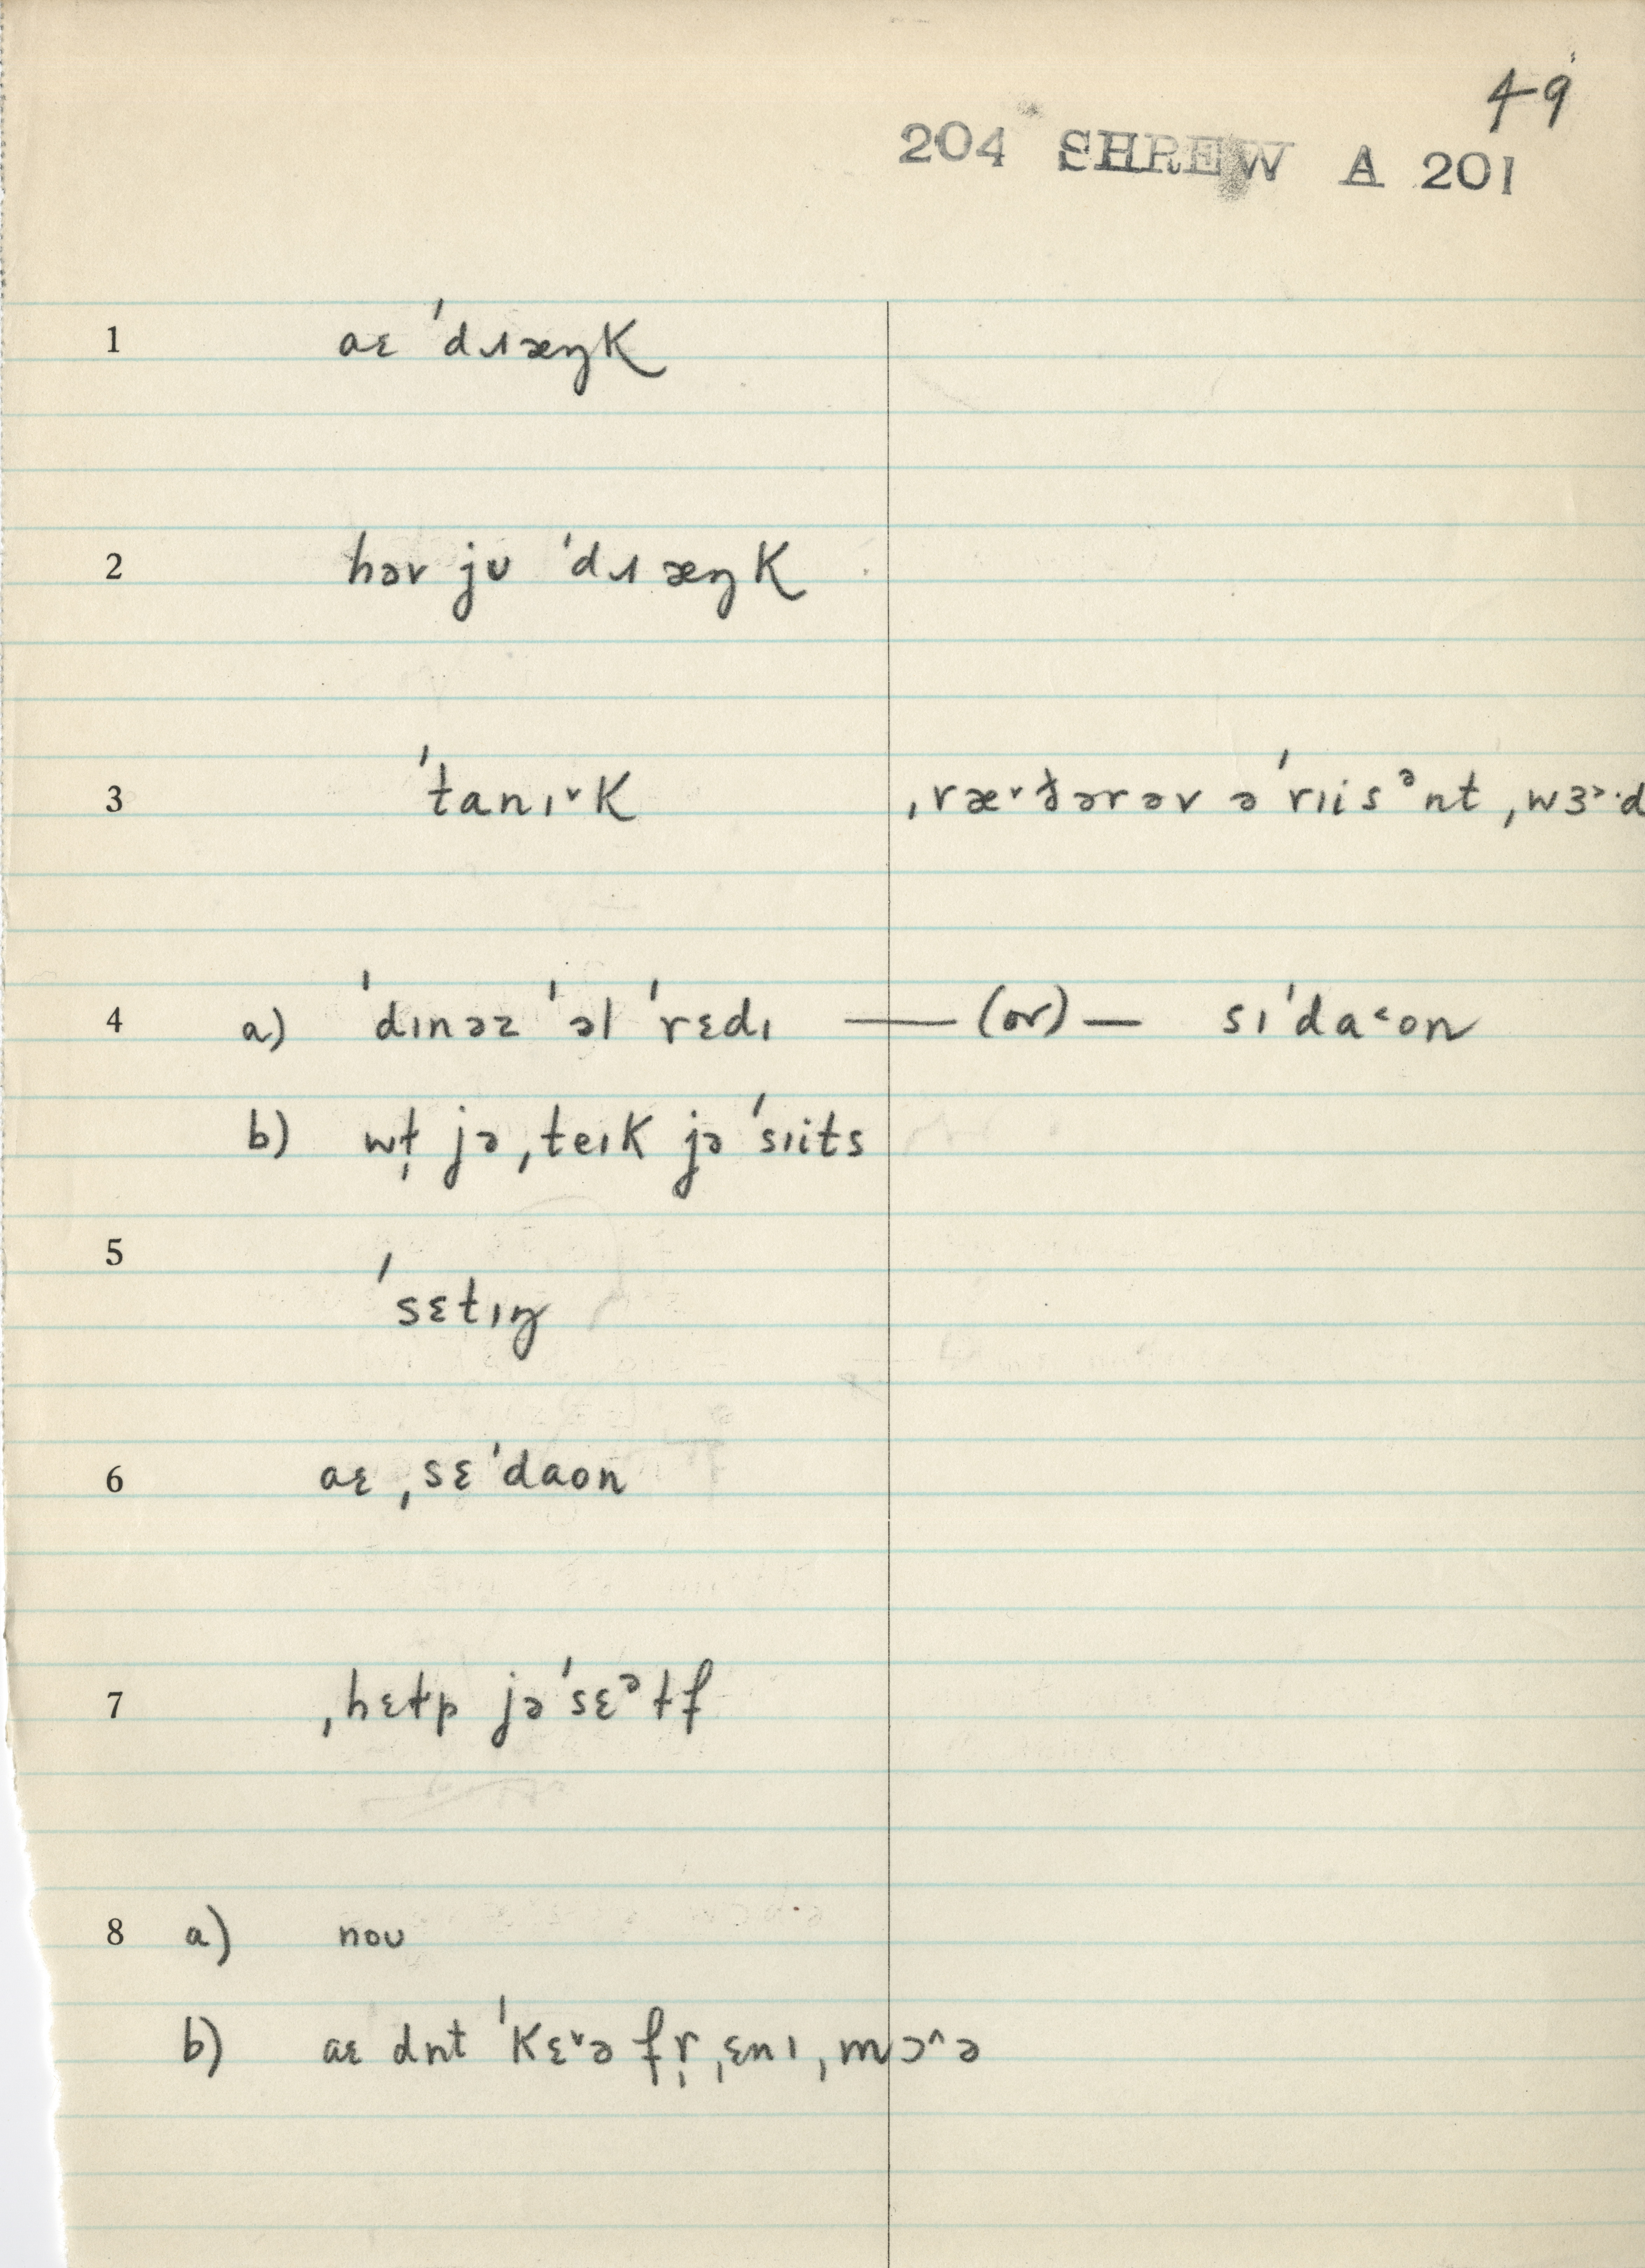 49
204 SHREW A 201
1 aɛ ˈdɹæŋk
2 həv jʊ ˈdɹæŋk
3 ˈtanɪ˅k ˌræ˅ðərəv əˈrɪisᵊnt ˌwɜ˞·d
4 a) ˈdɪnəz ˈəl ˈrɛdɪ —— (or) — sɪˈda˂on
b) wɫ̩ jə ˌteɪk jə ˈsɪits
5
ˈsɛtɪŋ
6 aɛ ˌsɛˈdaon
7 ˌhɛɫp jəˈsɛᵊɫf
8 a) noʊ
b) aɛ dnt ˈkɛ˅ə fr̩ ˌɛnɪ ˌmɔ˄ə